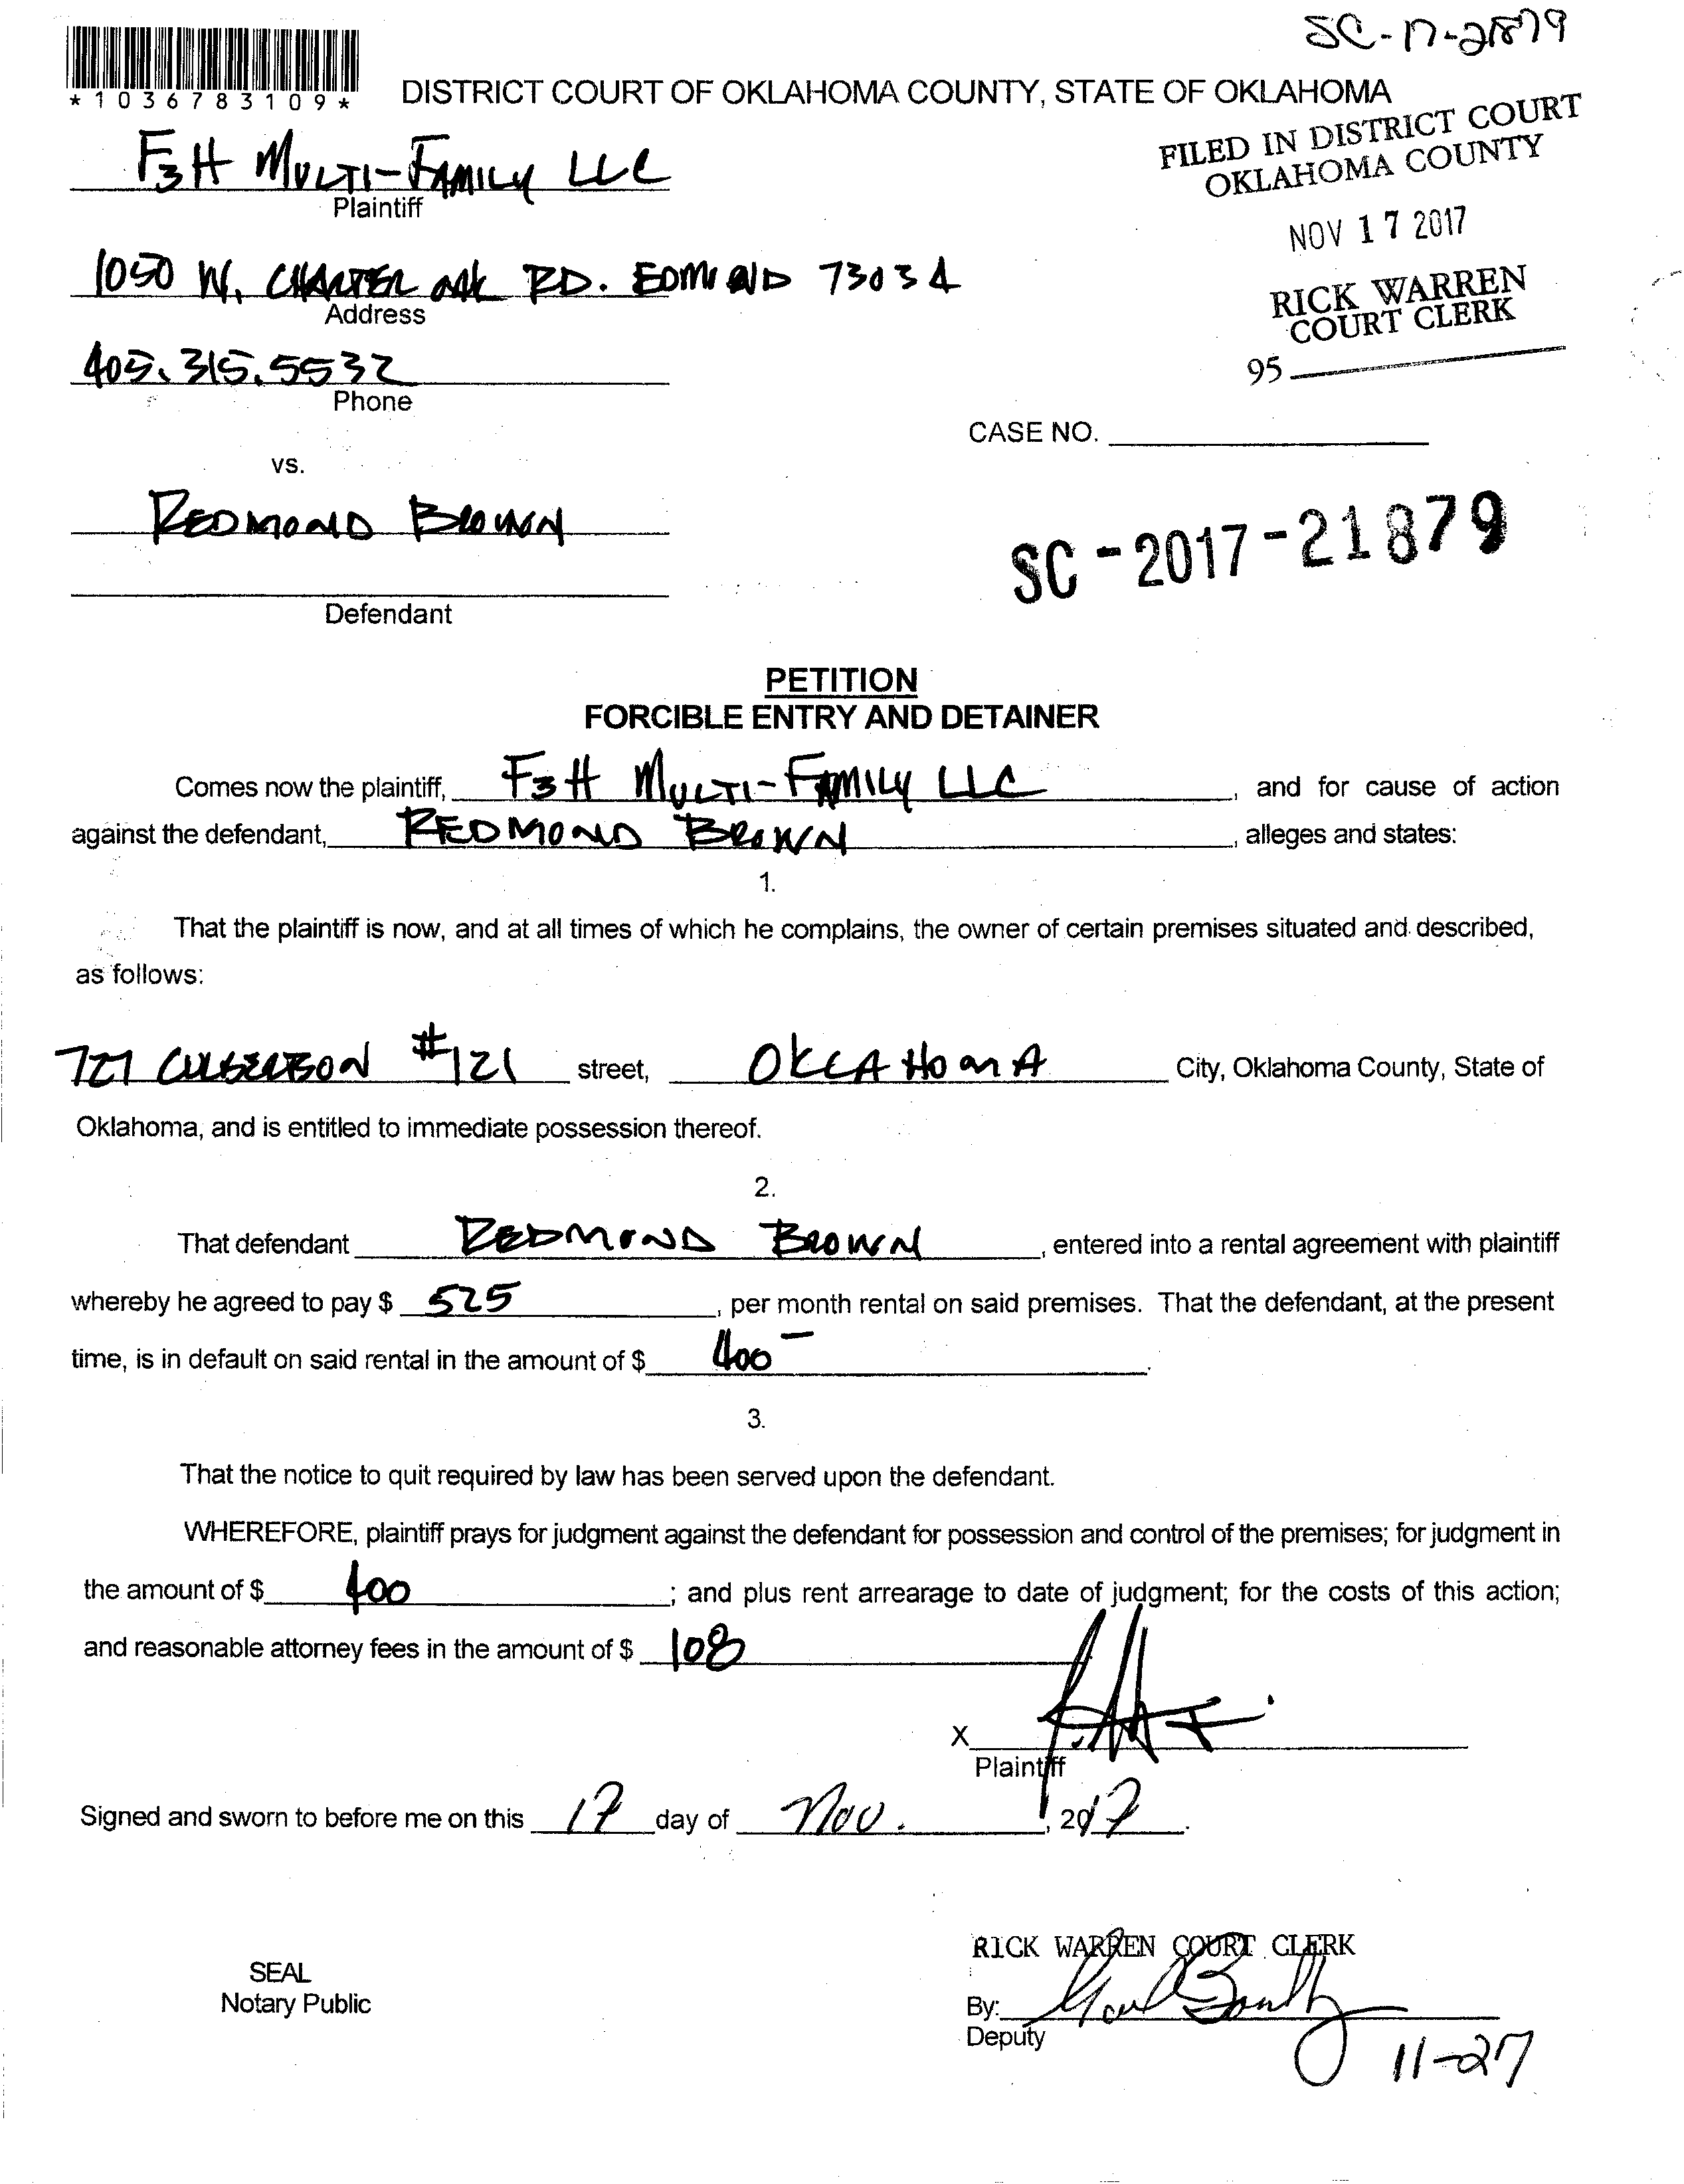 SC-17-21879
*1036783109*
DISTRICT COURT OF OKLAHOMA COUNTY, STATE OF OKLAHOMA
FILED IN DISTRICT COURT
OKLAHOMA COUNTY
F3H MULTI-FAMILY LLC
Plaintiff
NOV 17 2017
1050 W. CHARTER OAK RD. EDMOND 73034
Address
RICK WARREN
COURT CLERK
95
405.315.5532
Phone
CASE NO.
vs.
REDMOND BROWN
SC-2017-21879
Defendant
PETITION
FORCIBLE ENTRY AND DETAINER
Comes now the plaintiff, F3H MULTI-FAMILY LLC, and for cause of action
against the defendant, REDMOND BROWN, alleges and states:
1.
That the plaintiff is now, and at all times of which he complains, the owner of certain premises situated and described,
as follows:
727 CULBERTSON #121 street, OKLAHOMA City, Oklahoma County, State of
Oklahoma, and is entitled to immediate possession thereof.
2.
That defendant REDMOND BROWN, entered into a rental agreement with plaintiff
whereby he agreed to pay $ 525, per month rental on said premises. That the defendant, at the present
time, is in default on said rental in the amount of $ 400-.
3.
That the notice to quit required by law has been served upon the defendant.
WHEREFORE, plaintiff prays for judgment against the defendant for possession and control of the premises; for judgment in
the amount of $ 400; and plus rent arrearage to date of judgment; for the costs of this action;
and reasonable attorney fees in the amount of $ 108
X
Plaintiff
Signed and sworn to before me on this 17 day of Nov., 2017.
RICK WARREN COURT CLERK
SEAL
Notary Public
By:
Deputy
11-27